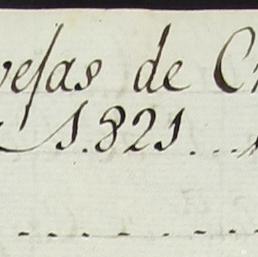 vejas de C
1.821...